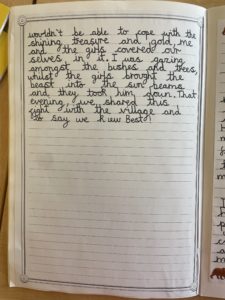 wouldn't be able to cope with the
shining treasure and gold, me
and the girls covered our
selves in it. I was gazing
amongst the bushes and trees,
whilst the girls brought the
beast into the sun beams
and they took him down. That
evening, we shared this
with the village and
to say we knew Best!